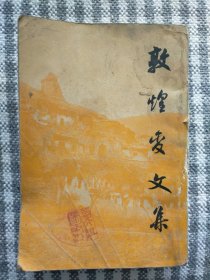 敦煌变文集